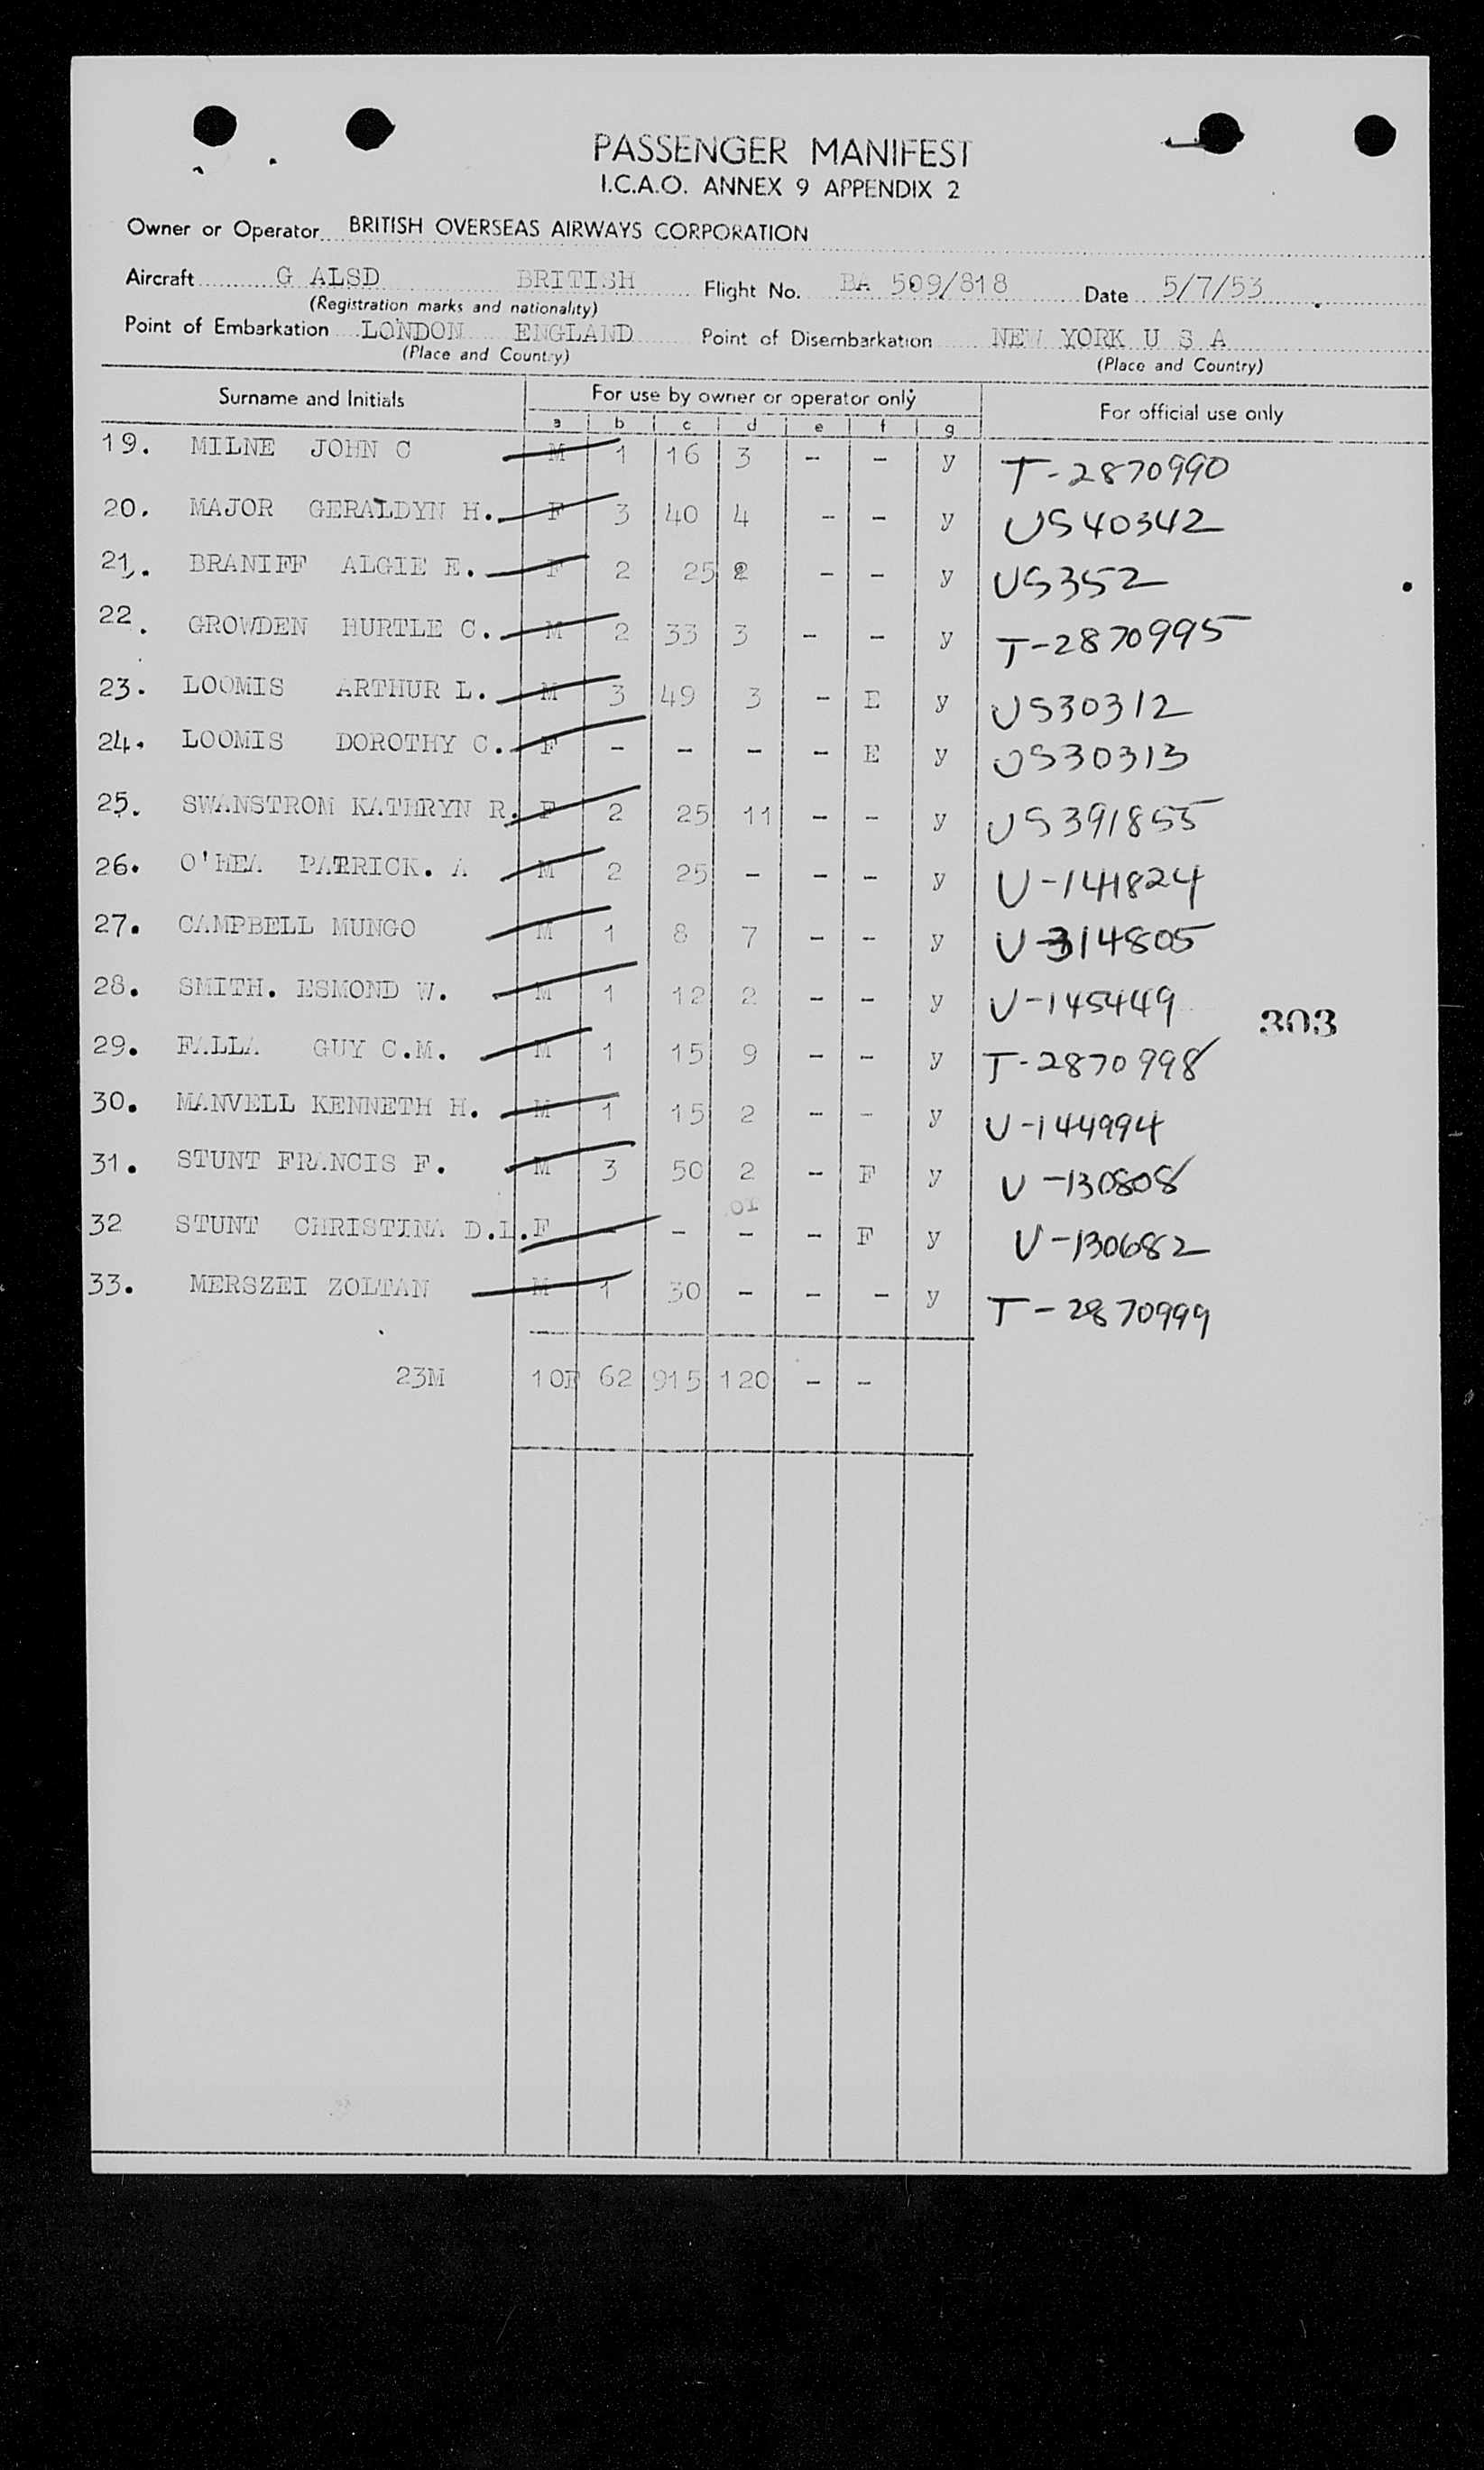 PASSENGER MANIFEST
I.C.A.O. ANNEX 9 APPENDIX 2
Owner or Operator BRITISH OVERSEAS AIRWAYS CORPORATION
Aircraft G ALSD BRITISH Flight No. BA 509/818 Date 5/7/53
(Registration marks and nationality)
Point of Embarkation LONDON ENGLAND Point of Disembarkation NEW YORK U S A
(Place and Country) (Place and Country)
Surname and Initials For use by owner or operator only For official use only
a b c d e f g
19. MILNE JOHN C M 1 16 3 - - y T-2870990
20. MAJOR GERALDYN H. F 3 40 4 - - y US40342
21. BRANIFF ALGIE E. F 2 25 2 - - y US352
22. GROWDEN HURTLE C. M 2 33 3 - - y T-2870995
23. LOOMIS ARTHUR L. M 3 49 3 - E y US30312
24. LOOMIS DOROTHY C. F - - - - E y US30313
25. SWANSTROM KATHRYN R. F 2 25 11 - - y US391855
26. O'HEA PATRICK. A M 2 25 - - - y U-141824
27. CAMPBELL MUNGO M 1 8 7 - - y U-314805
28. SMITH. ESMOND W. M 1 12 2 - - y U-145449
303
29. FALLA GUY C.M. M 1 15 9 - - y T-2870998
30. MANVELL KENNETH H. M 1 15 2 - - y U-144994
31. STUNT FRANCIS F. M 3 50 2 - F y U-130808
32 STUNT CHRISTINA D.L. F - - - - F y U-130682
33. MERSZEI ZOLTAN M 1 30 - - - y T-2870999
23M 10F 62 915 120 - -